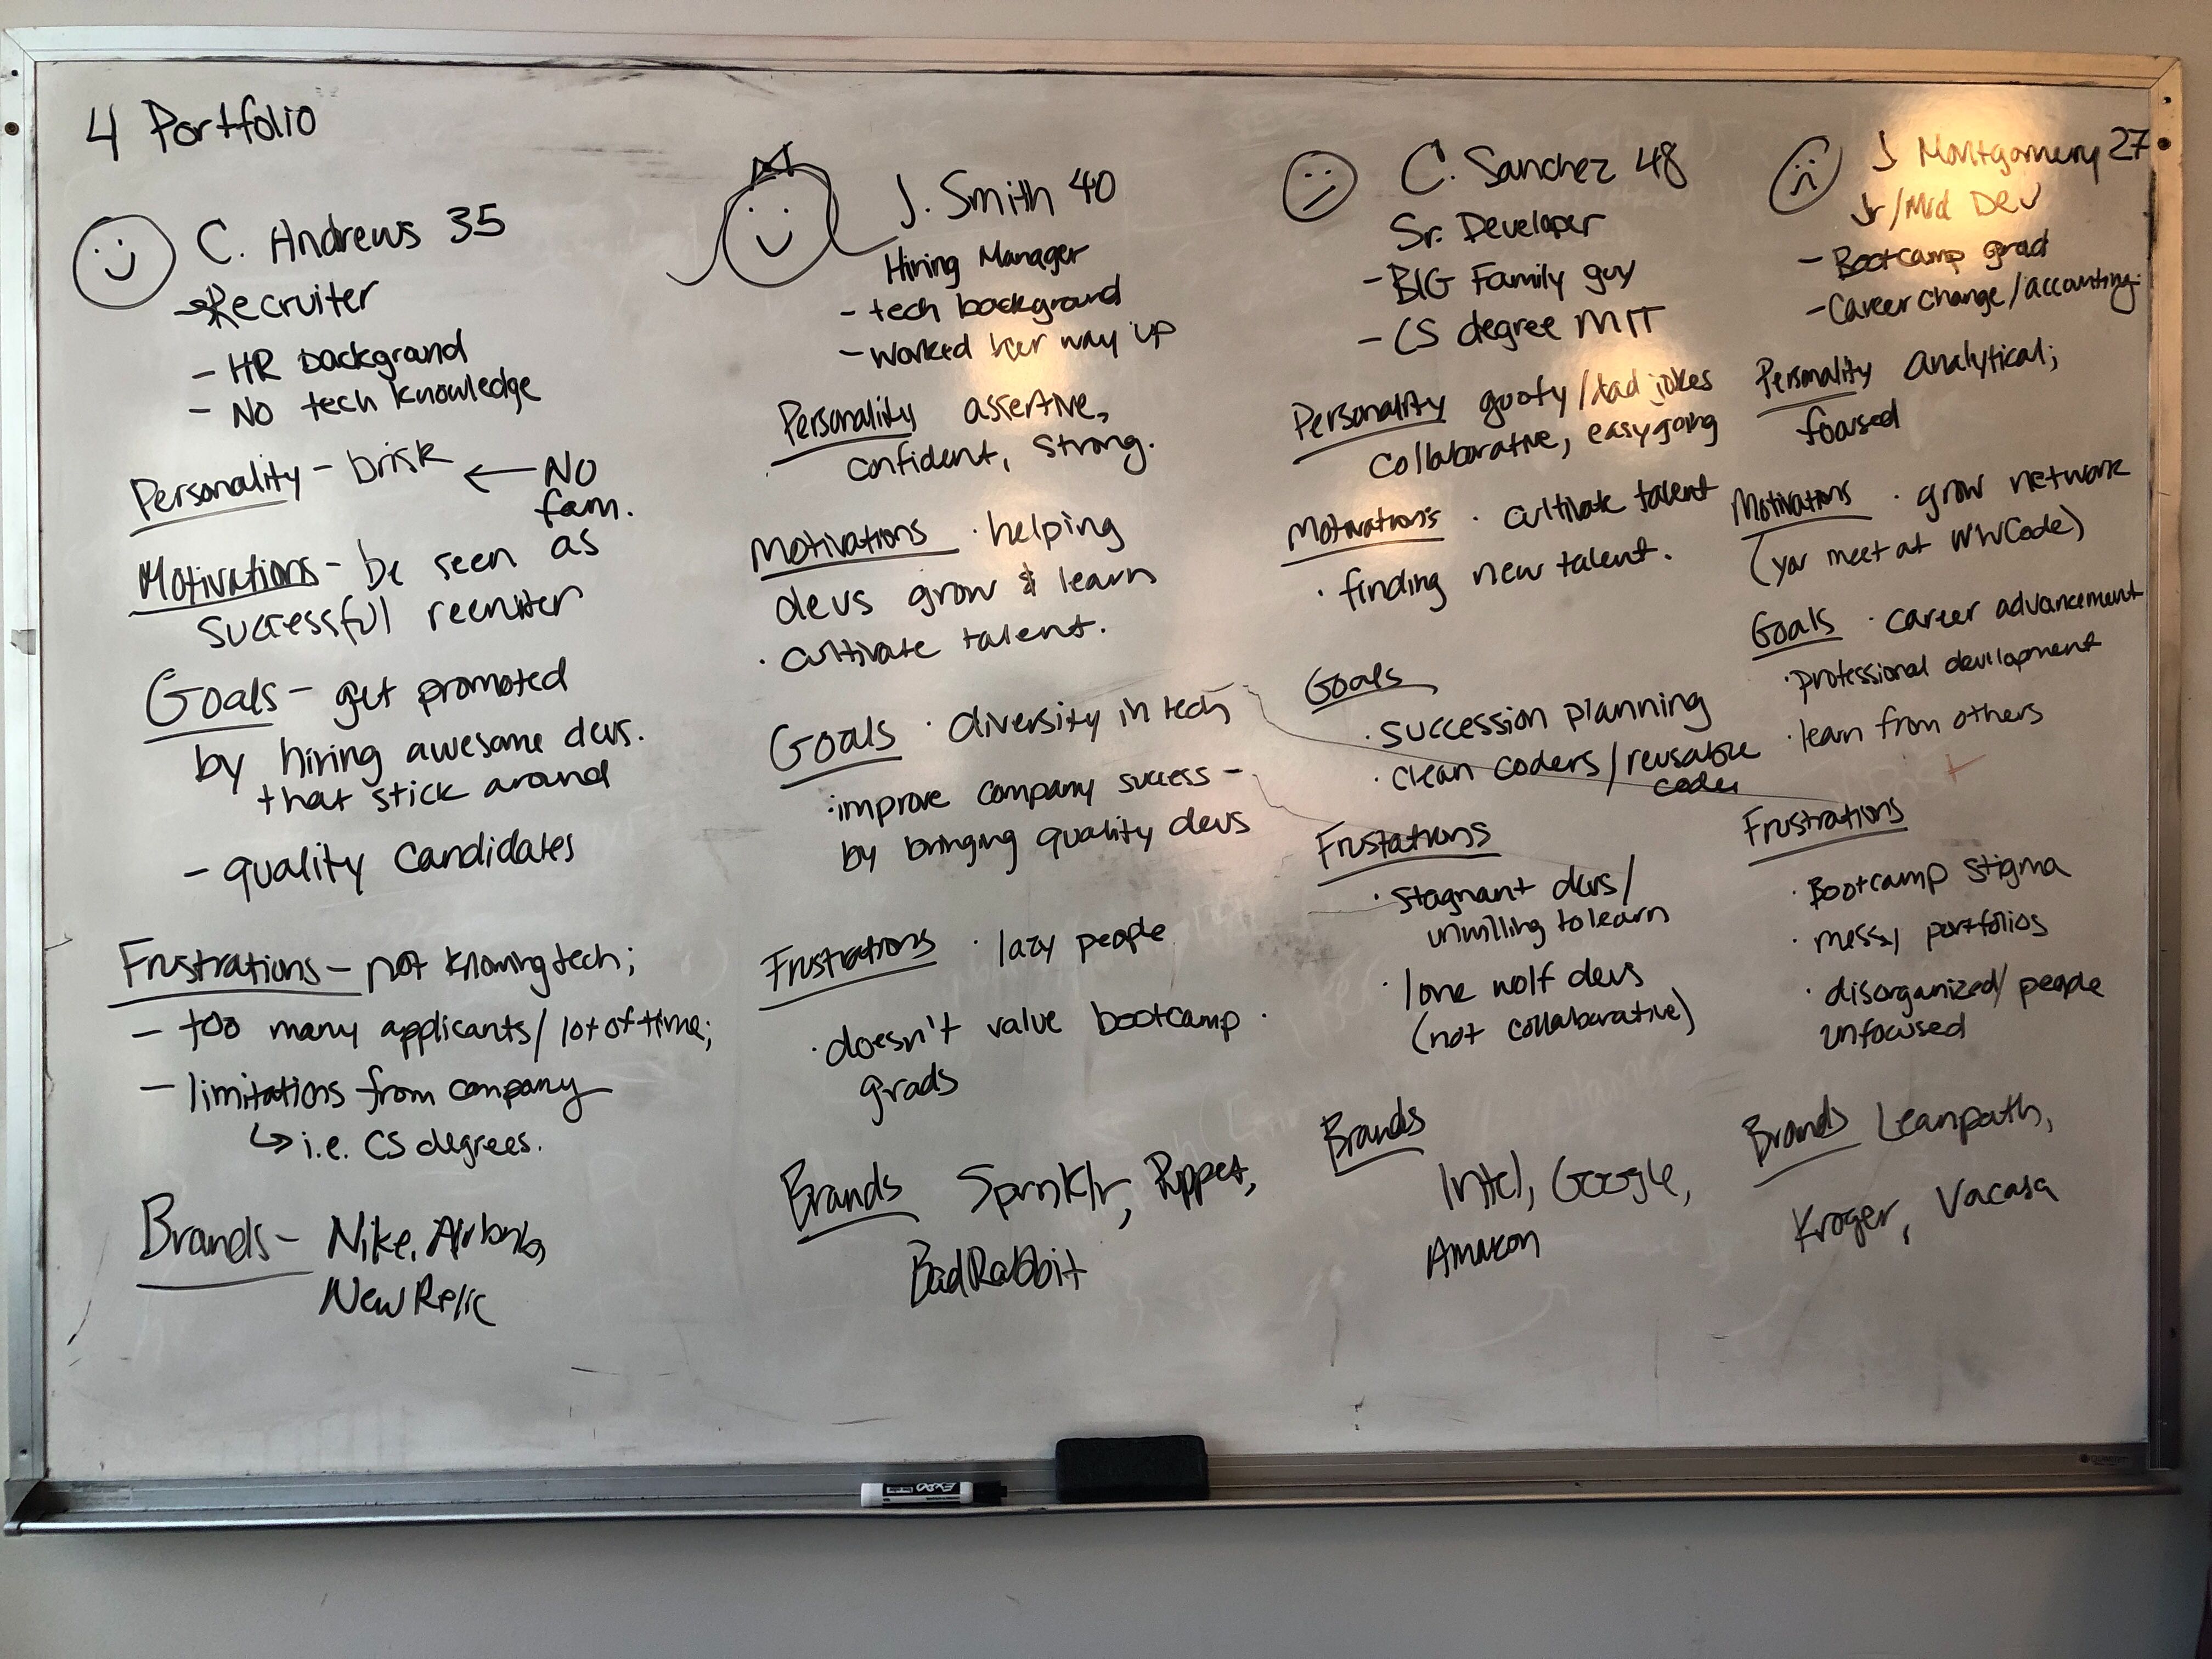 4 Portfolio
C. Andrews 35
Recruiter
- HR background
- No tech knowledge
Personality - brisk ← No
fam.
Motivations - be seen as
successful recruiter
Goals - get promoted
by hiring awesome devs.
that stick around
- quality candidates
Frustrations - not knowing tech;
- too many applicants/lot of time;
- limitations from company
↳ i.e. CS degrees.
Brands - Nike, Airbnb,
New Relic
J. Smith 40
Hiring Manager
- tech background
- worked her way up
Personality assertive,
confident, strong.
Motivations · helping
devs grow & learn
· cultivate talent.
Goals · diversity in tech
· improve company success -
by bringing quality devs
Frustrations · lazy people
· doesn't value bootcamp
grads
Brands Sprinklr, Puppet,
BadRabbit
C. Sanchez 48
Sr. Developer
- BIG Family guy
- CS degree MIT
Personality goofy/dad jokes
collaborative, easygoing
Motivations · cultivate talent
· finding new talent.
Goals
· succession planning
· clean coders/reusable
code
Frustations
· stagnant devs/
unwilling to learn
· lone wolf devs
(not collaborative)
Brands
Intel, Google,
Amazon
J Montgomery 27
Jr/Mid Dev
- Bootcamp grad
- Career change/accounting
Personality analytical;
focused
Motivations · grow network
(you meet at WWCode)
Goals · career advancement
· professional development
· learn from others
Frustrations
· Bootcamp stigma
· messy portfolios
· disorganized/people
unfocused
Brands Leanpath,
Kroger, Vacasa
EXPO